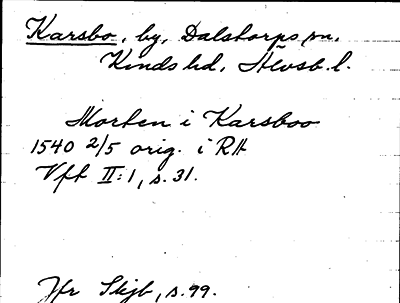 Karsbo, by, Dalstorps sn.
Kinds hd, Älvsb. l.
Morten i Karsboo
1540 2/5 orig. i RA
Vft II:1, s. 31.
Jfr Skjb, s. 99.